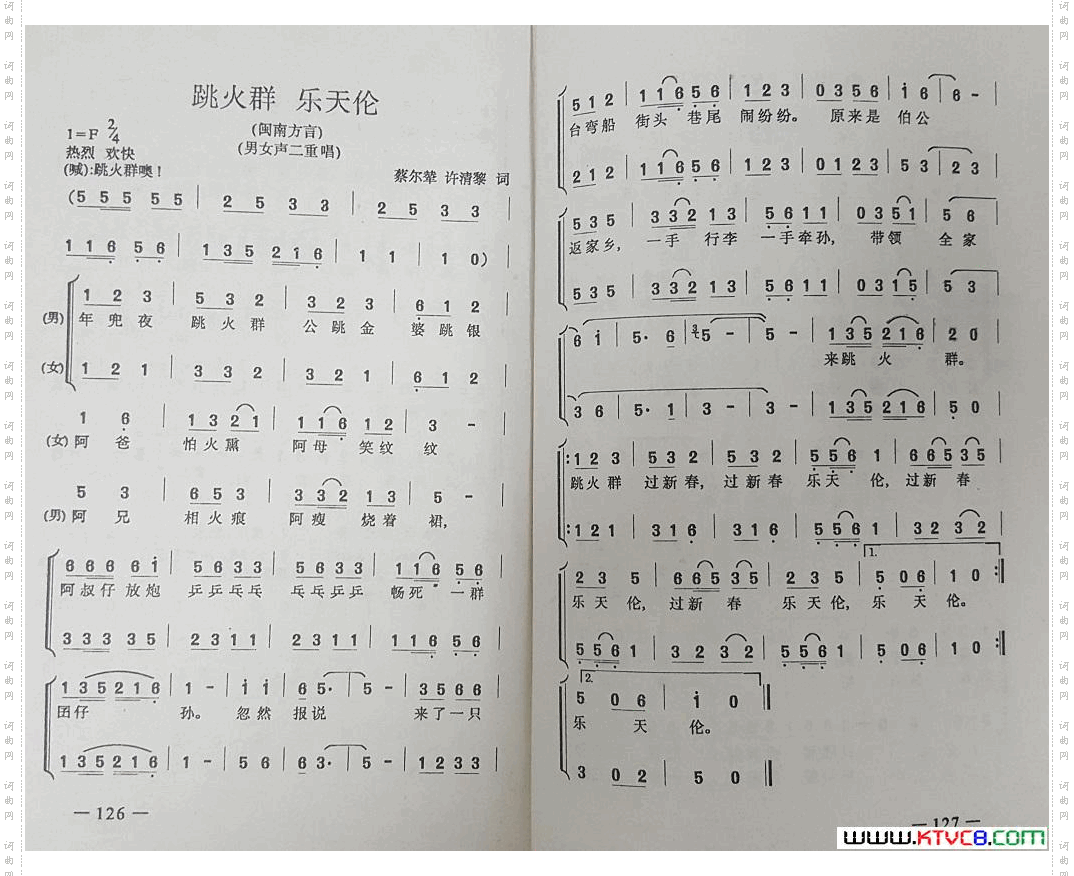 跳火群 乐天伦
(闽南方言)
1=F 2/4
(男女声二重唱)
热烈 欢快
(喊):跳火群噢!
蔡尔辇 许清黎 词
(5 5 5 5 5 | 2 5 3 3 | 2 5 3 3 |
1 1 6 5 6 | 1 3 5 2 1 6 | 1 1 | 1 0) |
1 2 3 | 5 3 2 | 3 2 3 | 6 1 2 |
(男) 年兜夜 跳火群 公跳金 婆跳银
(女) 1 2 1 | 3 3 2 | 3 2 1 | 6 1 2 |
1 6 | 1 3 2 1 | 1 1 6 1 2 | 3 - |
(女) 阿爸 怕火熏 阿母 笑纹纹
5 3 | 6 5 3 | 3 3 2 1 3 | 5 - |
(男) 阿兄 相火痕 阿瘦 烧着裙,
6 6 6 6 i | 5 6 3 3 | 5 6 3 3 | 1 1 6 5 6 |
阿叔仔放炮 乒乒乓乓 乓乓乒乒 畅死一群
3 3 3 3 5 | 2 3 1 1 | 2 3 1 1 | 1 1 6 5 6 |
1 3 5 2 1 6 | 1 - | i i | 6 5· | 5 - | 3 5 6 6 |
囝仔 孙。 忽然 报说 来了一只
1 3 5 2 1 6 | 1 - | 5 6 | 6 3· | 5 - | 1 2 3 3 |
— 126 —
5 1 2 | 1 1 6 5 6 | 1 2 3 | 0 3 5 6 | i 6 | 6 - |
台弯船 街头 巷尾 闹纷纷。 原来是 伯公
2 1 2 | 1 1 6 5 6 | 1 2 3 | 0 1 2 3 | 5 3 | 2 3 |
5 3 5 | 3 3 2 1 3 | 5 6 1 1 | 0 3 5 1 | 5 6 |
返家乡, 一手 行李 一手牵孙, 带领 全家
5 3 5 | 3 3 2 1 3 | 5 6 1 1 | 0 3 1 5 | 5 3 |
6 i | 5· 6 | 5 - | 5 - | 1 3 5 2 1 6 | 2 0 |
来跳 火 群。
3 6 | 5· 1 | 3 - | 3 - | 1 3 5 2 1 6 | 5 0 |
|: 1 2 3 | 5 3 2 | 5 3 2 | 5 5 6 1 | 6 6 5 3 5 |
跳火群 过新春, 过新春 乐天 伦, 过新 春
|: 1 2 1 | 3 1 6 | 3 1 6 | 5 5 6 1 | 3 2 3 2 |
1.
2 3 5 | 6 6 5 3 5 | 2 3 5 | 5 0 6 | 1 0 :|
乐天伦, 过新 春 乐天伦, 乐 天 伦。
5 5 6 1 | 3 2 3 2 | 5 5 6 1 | 5 0 6 | 1 0 :|
2.
5 0 6 | i 0 ‖
乐 天 伦。
3 0 2 | 5 0 ‖
— 127 —
www.KTVC8.com
词曲网